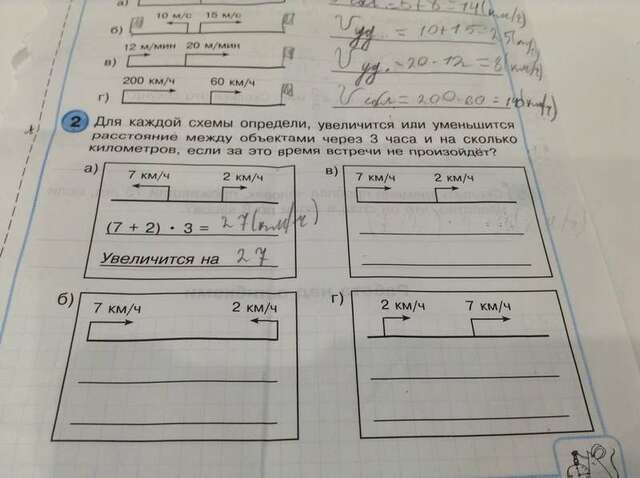 а)
= 5 + 8 = 14 (км/ч)
б) 10 м/с 15 м/с
Vуд. = 10 + 15 = 25
в) 12 м/мин 20 м/мин
Vуд. = 20 - 12 = 8 (км/ч)
г) 200 км/ч 60 км/ч
Vсбл = 200 - 60 = 140 км/ч
2 Для каждой схемы определи, увеличится или уменьшится
расстояние между объектами через 3 часа и на сколько
километров, если за это время встречи не произойдёт?
а) 7 км/ч 2 км/ч
(7 + 2) · 3 = 27 (км/ч)
Увеличится на 27
в) 7 км/ч 2 км/ч
б) 7 км/ч 2 км/ч
г) 2 км/ч 7 км/ч